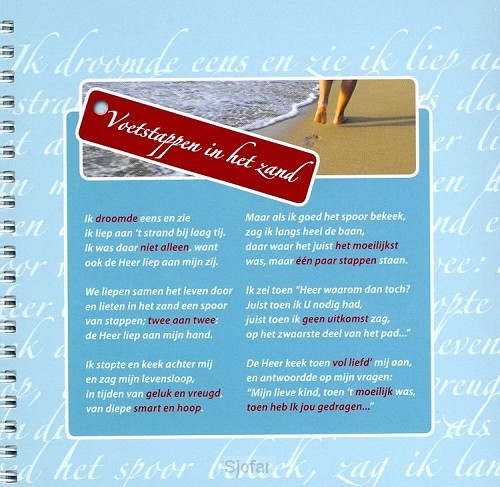 Ik droomde eens en zie ik liep aa
Voetstappen in het zand
Ik droomde eens en zie
ik liep aan 't strand bij laag tij.
Ik was daar niet alleen, want
ook de Heer liep aan mijn zij.
We liepen samen het leven door
en lieten in het zand een spoor
van stappen; twee aan twee:
de Heer liep aan mijn hand.
Ik stopte en keek achter mij
en zag mijn levensloop,
in tijden van geluk en vreugd,
van diepe smart en hoop.
Maar als ik goed het spoor bekeek,
zag ik langs heel de baan,
daar waar het juist het moeilijkst
was, maar één paar stappen staan.
Ik zei toen "Heer waarom dan toch?
Juist toen ik U nodig had,
juist toen ik geen uitkomst zag,
op het zwaarste deel van het pad..."
De Heer keek toen vol liefd' mij aan,
en antwoordde op mijn vragen:
"Mijn lieve kind, toen 't moeilijk was,
toen heb Ik jou gedragen..."
oed het spoor bekeek, zag ik lan
Sjofar